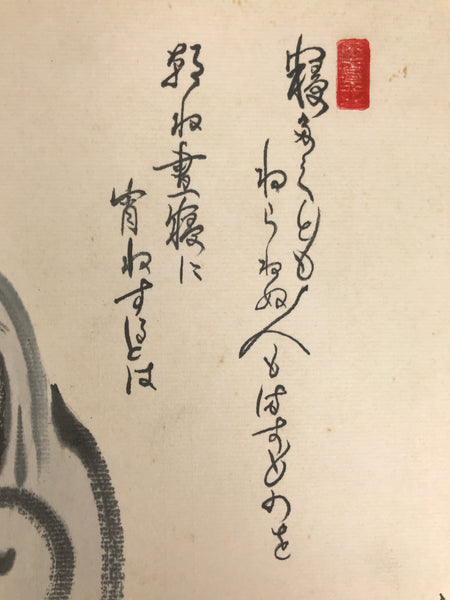 寝たくとも
ねられぬ人もますものを
朝ね晝寝に
宵ねするとは